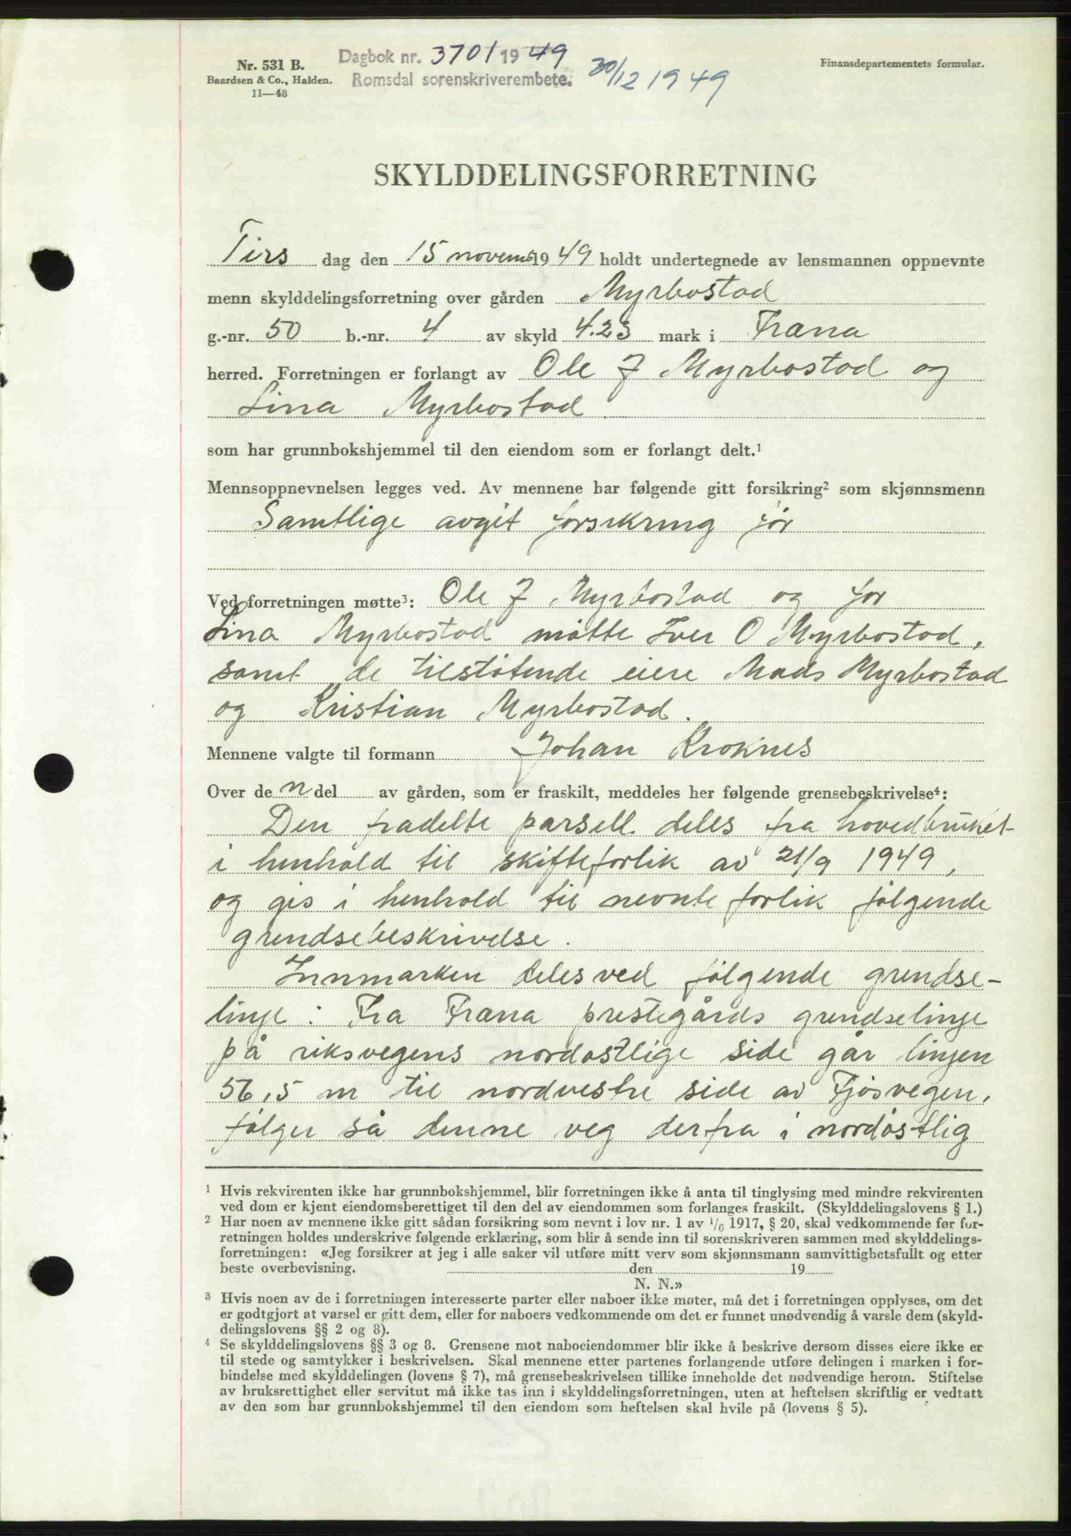 Nr. 531 B.
Baardsen & Co., Halden.
11—48
Dagbok nr. 3701 1949
Romsdal sorenskriverembete.
30/12 1949
Finansdepartementets formular.
SKYLDDELINGSFORRETNING
Tirs dag den 15 novemb 1949 holdt undertegnede av lensmannen oppnevnte
menn skylddelingsforretning over gården Myrbostad
g.-nr. 50 b.-nr. 4 av skyld 4.23 mark i Fræna
herred. Forretningen er forlangt av Ole J Myrbostad og
Lina Myrbostad.
som har grunnbokshjemmel til den eiendom som er forlangt delt.¹
Mennsoppnevnelsen legges ved. Av mennene har følgende gitt forsikring² som skjønnsmenn
Samtlige avgit forsikring før
Ved forretningen møtte³: Ole J Myrbostad og for
Lina Myrbostad møtte Iver O Myrbostad,
samt de tilstøtende eiere Mads Myrbostad
og Kristian Myrbostad.
Mennene valgte til formann Johan Kroknes
Over de n del av gården, som er fraskilt, meddeles her følgende grensebeskrivelse⁴:
Den fradelte parsell deles fra hovedbruket
i henhold til skifteforlik av 21/9 1949,
og gis i henhold til nevnte forlik følgende
grendsebeskrivelse.
Innmarken deles ved følgende grendse-
linje: Fra Fræna prestegårds grendselinje
på riksvegens nordøstlige side går linjen
56,5 m til nordvestre side av Fjøsvegen,
følger så denne veg derfra i nordøstlig
¹ Hvis rekvirenten ikke har grunnbokshjemmel, blir forretningen ikke å anta til tinglysing med mindre rekvirenten
ved dom er kjent eiendomsberettiget til den del av eiendommen som forlanges fraskilt. (Skylddelingslovens § 1.)
² Har noen av mennene ikke gitt sådan forsikring som nevnt i lov nr. 1 av 1/6 1917, § 20, skal vedkommende før for-
retningen holdes underskrive følgende erklæring, som blir å sende inn til sorenskriveren sammen med skylddelings-
forretningen: «Jeg forsikrer at jeg i alle saker vil utføre mitt verv som skjønnsmann samvittighetsfullt og etter
beste overbevisning. den 19
N. N.»
³ Hvis noen av de i forretningen interesserte parter eller naboer ikke møter, må det i forretningen opplyses, om det
er godtgjort at varsel er gitt dem, eller for naboers vedkommende om det er funnet unødvendig å varsle dem (skyld-
delingslovens §§ 2 og 8).
⁴ Se skylddelingslovens §§ 3 og 8. Grensene mot naboeiendommer blir ikke å beskrive dersom disses eiere ikke er
til stede og samtykker i beskrivelsen. Skal mennene etter partenes forlangende utføre delingen i marken i for-
bindelse med skylddelingen (lovens § 7), må grensebeskrivelsen tillike inneholde det nødvendige herom. Stiftelse
av bruksrettighet eller servitut må ikke tas inn i skylddelingsforretningen, uten at heftelsen skriftlig er vedtatt
av den som har grunnbokshjemmel til den eiendom som heftelsen skal hvile på (lovens § 5).